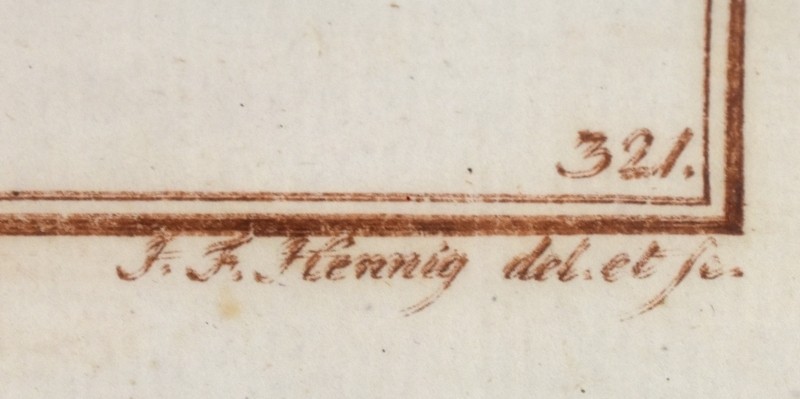 321.
J. F. Hennig del. et sc.